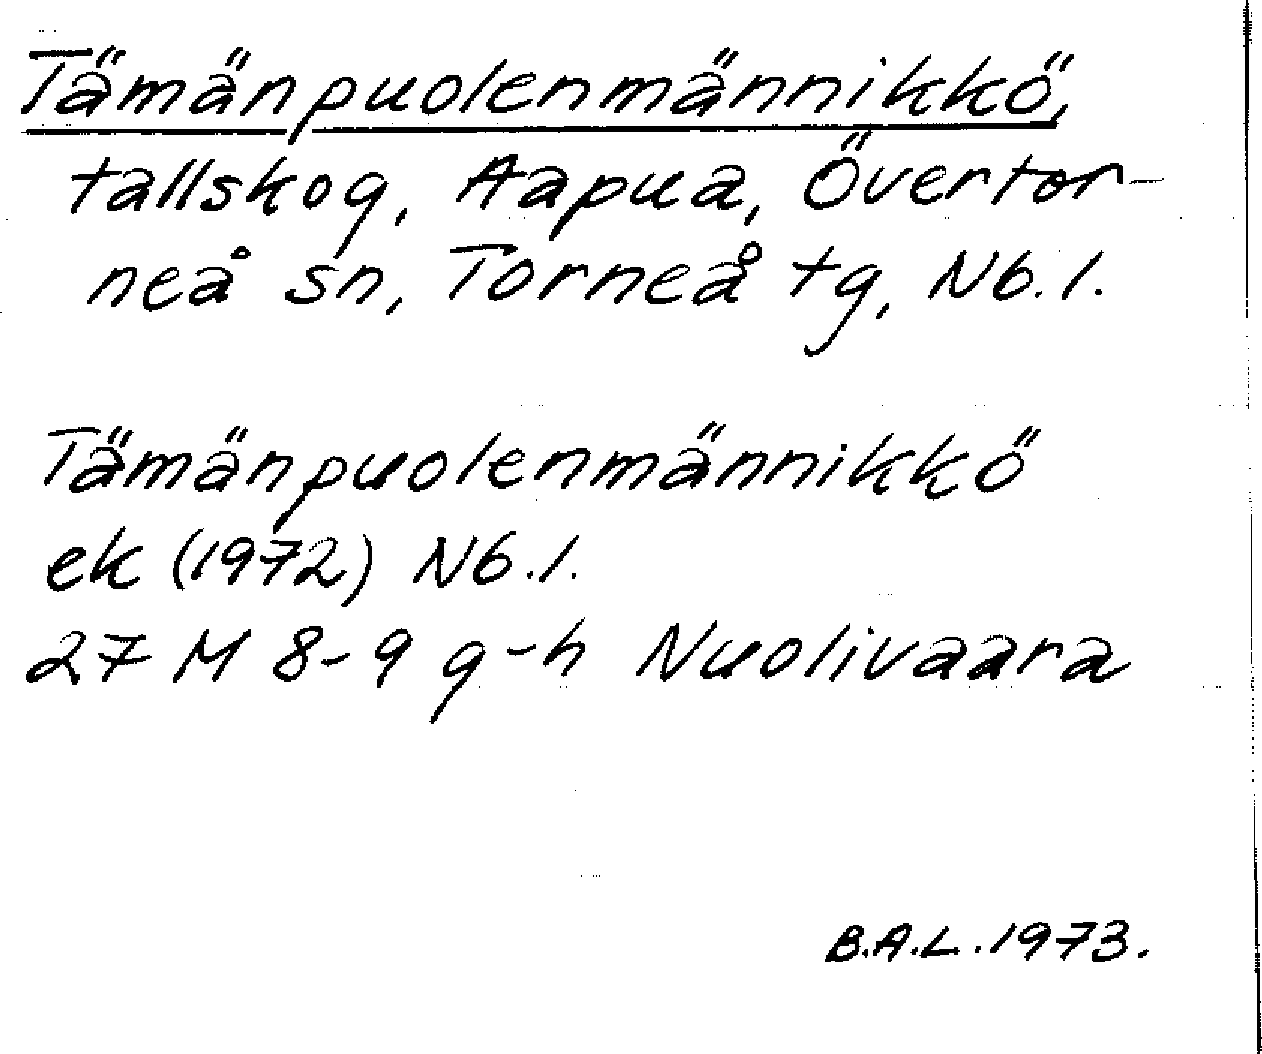 Tämänpuolenmännikkö,
tallskog, Aapua, Övertor-
neå sn, Torneå tg, Nb. l.
Tämänpuolenmännikkö
ek (1972) Nb. l.
27 M 8-9 g-h Nuolivaara
B.A.L. 1973.